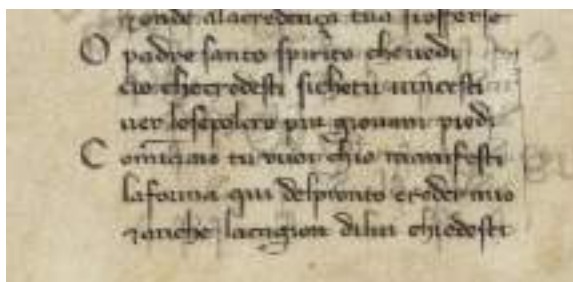 ⁊ onde alacredença tua sofferse
O padre santo spirito cheuedi
cio checredesti sichetu uincesti
uer losepolcro piu giouani piedi
Cominciaio tu vuoi chio manifesti
laforma qui delpronto creder mio
⁊ anche lacagion dilui chiedesti